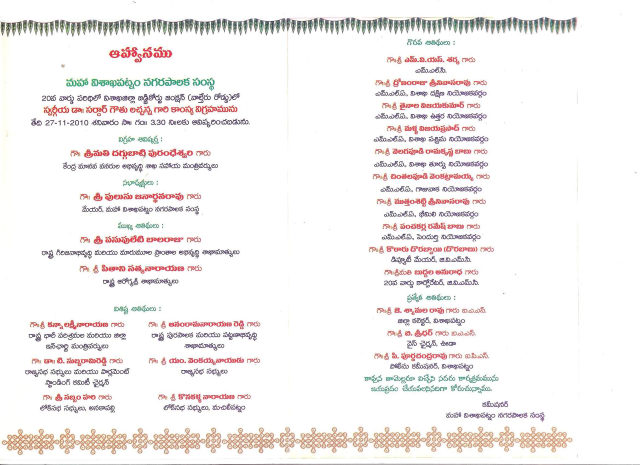 ఆహ్వానము
మహా విశాఖపట్నం నగరపాలక సంస్థ
20వ వార్డు పరిధిలో విశాఖజిల్లా జడ్జికోర్టు జంక్షన్ (వాల్తేరు రోడ్డు)లో
స్వర్గీయ డా॥ సర్దార్ గౌతు లచ్చన్న గారి కాంస్య విగ్రహమును
తేది 27-11-2010 శనివారం సా॥ గం॥ 3.30 ని॥లకు ఆవిష్కరించబడును.
విగ్రహ ఆవిష్కర్త :
గౌ॥ శ్రీమతి దగ్గుబాటి పురంధేశ్వరి గారు
కేంద్ర మానవ వనరుల అభివృద్ధి శాఖ సహాయ మంత్రివర్యులు
సభాధ్యక్షులు :
గౌ॥ శ్రీ పులుసు జనార్ధనరావు గారు
మేయర్, మహా విశాఖపట్నం నగరపాలక సంస్థ
ముఖ్య అతిథులు :
గౌ॥ శ్రీ పసుపులేటి బాలరాజు గారు
రాష్ట్ర గిరిజనాభివృద్ధి మరియు మారుమూల ప్రాంతాల అభివృద్ధి శాఖామాత్యులు
గౌ॥ శ్రీ పితాని సత్యనారాయణ గారు
రాష్ట్ర ఆరోగ్యశ్రీ శాఖామాత్యులు
విశిష్ట అతిథులు :
గౌ॥శ్రీ కన్నా లక్ష్మీనారాయణ గారు
రాష్ట్ర భారీ పరిశ్రమల మరియు జిల్లా
ఇన్‌ఛార్జి మంత్రివర్యులు
గౌ॥ శ్రీ ఆనంరామనారాయణ రెడ్డి గారు
రాష్ట్ర పురపాలక మరియు పట్టణాభివృద్ధి
శాఖామాత్యులు
గౌ॥ డా॥ టి. సుబ్బరామిరెడ్డి గారు
రాజ్యసభ సభ్యులు మరియు పార్లమెంట్
స్టాండింగ్ కమిటీ ఛైర్మన్
గౌ॥ శ్రీ యం. వెంకయ్యనాయుడు గారు
రాజ్యసభ సభ్యులు
గౌ॥ శ్రీ సబ్బం హరి గారు
లోక్‌సభ సభ్యులు, అనకాపల్లి
గౌ॥ శ్రీ కొనకళ్ళ నారాయణ గారు
లోక్‌సభ సభ్యులు, మచిలీపట్నం
గౌరవ అతిథులు :
గౌ॥శ్రీ ఎమ్.వి.యస్. శర్మ గారు
ఎమ్.ఎల్.సి.
గౌ॥శ్రీ ద్రోణంరాజు శ్రీనివాసరావు గారు
ఎమ్.ఎల్.ఏ., విశాఖ దక్షిణ నియోజకవర్గం
గౌ॥శ్రీ తైనాల విజయకుమార్ గారు
ఎమ్.ఎల్.ఏ., విశాఖ ఉత్తర నియోజకవర్గం
గౌ॥శ్రీ మళ్ళ విజయప్రసాద్ గారు
ఎమ్.ఎల్.ఏ., విశాఖ పశ్చిమ నియోజకవర్గం
గౌ॥శ్రీ వెలగపూడి రామకృష్ణ బాబు గారు
ఎమ్.ఎల్.ఏ., విశాఖ తూర్పు నియోజకవర్గం
గౌ॥శ్రీ చింతలపూడి వెంకట్రామయ్య గారు
ఎమ్.ఎల్.ఏ., గాజువాక నియోజకవర్గం
గౌ॥శ్రీ ముత్తంశెట్టి శ్రీనివాసరావు గారు
ఎమ్.ఎల్.ఏ., భీమిలి నియోజకవర్గం
గౌ॥శ్రీ పంచకర్ల రమేష్ బాబు గారు
ఎమ్.ఎల్.ఏ., పెందుర్తి నియోజకవర్గం
గౌ॥శ్రీ కొఠారు దొరబ్బాయి (దొరబాబు) గారు
డిప్యూటీ మేయర్, జి.వి.ఎమ్.సి.
గౌ॥శ్రీమతి బుద్దల అనురాధ గారు
20వ వార్డు కార్పొరేటర్, జి.వి.ఎమ్.సి.
ప్రత్యేక అతిథులు :
గౌ॥శ్రీ జె. శ్యామల రావు ఐ.ఎ.ఎస్.
జిల్లా కలెక్టర్, విశాఖపట్నం
గౌ॥శ్రీ బి. శ్రీధర్ గారు ఐ.ఎ.ఎస్.
వైస్ ఛైర్మన్, ఉడా
గౌ॥శ్రీ పి. పూర్ణచంద్రరావు గారు ఐ.పి.ఎస్.
పోలీసు కమీషనర్, విశాఖపట్నం
కావున తామెల్లరూ విచ్చేసి సదరు కార్యక్రమమును
జయప్రదం చేయవలసినదిగా కోరుచున్నాము.
కమీషనర్
మహా విశాఖపట్నం నగరపాలక సంస్థ